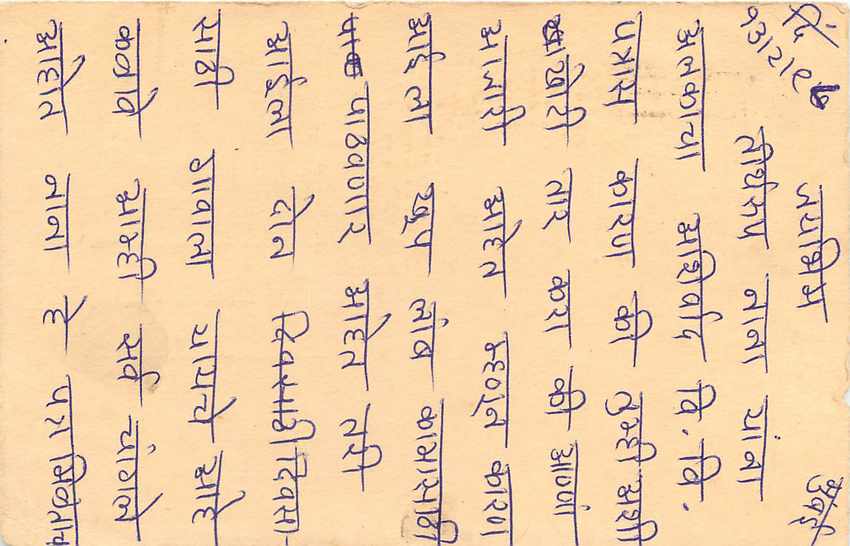 मुंबई
१३।२।९७
जयभिम
तीर्थरुप नाना यांना
अलकाचा आशिर्वाद वि. वि.
पत्रास कारण की तुम्ही अशी
खोटी तार करा की आण्णा
आजारी आहेत म्हणुन कारण
आईला खुप लांब कामासाठी
पाठवणार आहेत तरी
आईला दोन दिवसा-
साठी गावाला यायचे आहे
कळावे आम्ही सर्व चांगले
आहोत नाना हे पत्र मिळताच